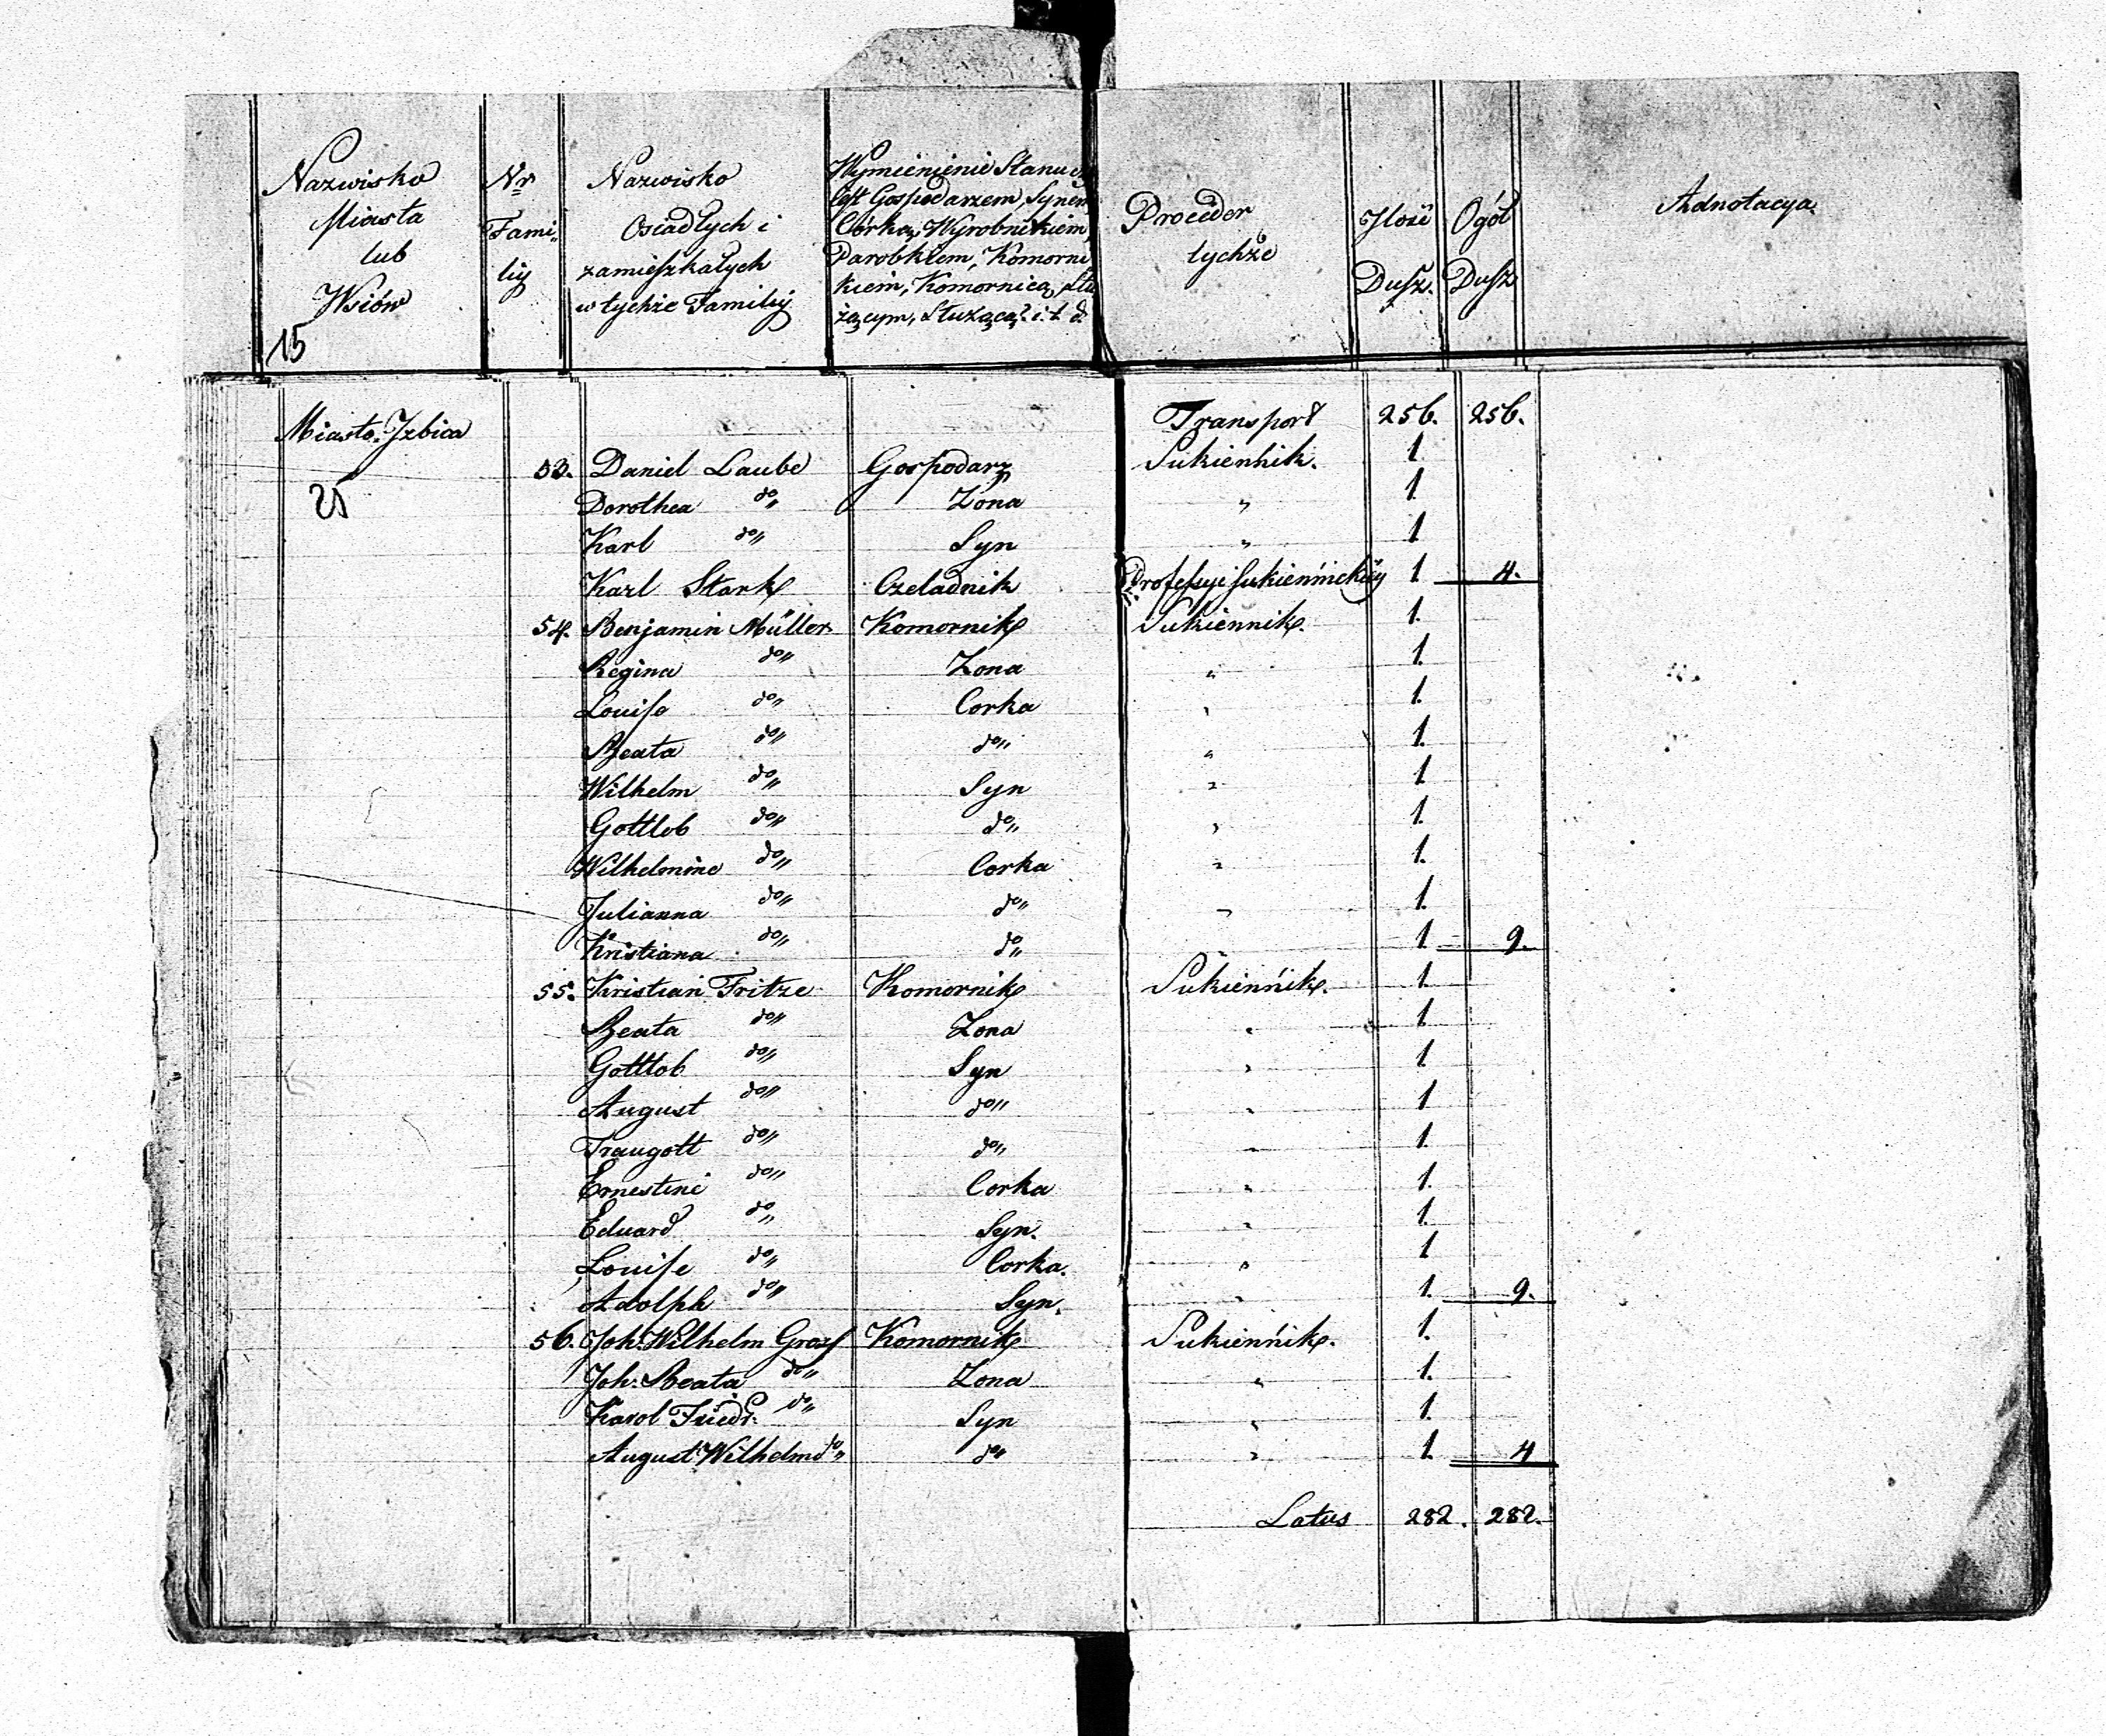 Nazwisko Miasta lub Wsiów
Nr Familij
Nazwisko Osiadłych i zamieszkałych w tychże Familij
Wymienienie Stanu
Jest Gospodarzem, Synem
Córką, Wyrobnikiem,
Parobkiem, Komorni
kiem, Komornicą, Słu
żącym, Służącą? i. t. d.
Proceder tychże
Ilość Dusz.
Ogół Dusz
Adnotacya.
15
Miasto Izbica
25
Transport 256. 256.
53. Daniel Laube Gospodarz Sukiennik. 1
Dorothea do„ Żona „ 1
Karl do„ Syn „ 1
Karl Stark Czeladnik Professyi Sukiennickiey 1 4.
54. Benjamin Müller Komornik Sukiennik. 1.
Regina do„ Zona „ 1.
Louise do„ Corka „ 1.
Beata do„ do„ „ 1.
Wilhelm do„ Syn „ 1
Gottlob do„ do„ „ 1.
Wilhelmine do„ Corka „ 1.
Julianna do„ do„ „ 1.
Kristiana do„ do„ 1 9.
55. Kristian Fritze Komornik Sukiennik. 1.
Beata do„ Zona „ 1
Gottlob do„ Syn „ 1
August do„ do„ „ 1
Traugott do„ do„ „ 1.
Ernestine do„ Corka „ 1.
Eduard do„ Syn. „ 1.
Louise do„ Corka. „ 1
Adolph do„ Syn. „ 1. 9.
56. Joh: Wilhelm Gross Komornik Sukiennik. 1.
Joh: Beata do„ Zona „ 1.
Karol Friedr: do„ Syn „ 1.
August Wilhelm do„ do„ „ 1. 4
Latus 282. 282.